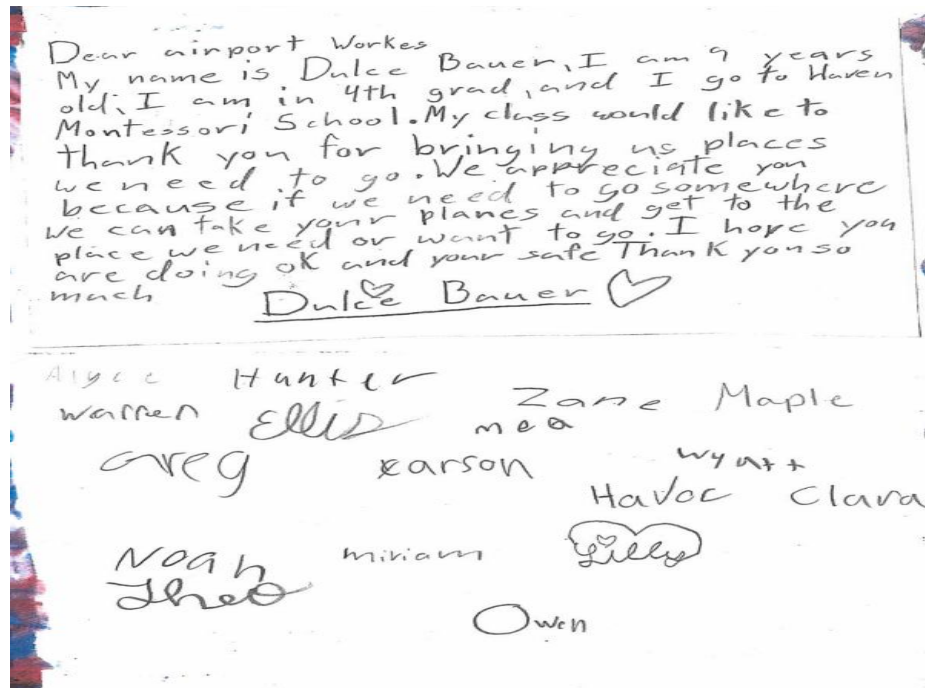 Dear airport Workes
My name is Dulce Bauer, I am 9 years
old, I am in 4th grad, and I go to Haven
Montessori School. My class would like to
thank you for bringing us places
we need to go. We appreciate you
because if we need to go somewhere
we can take your planes and get to the
place we need or want to go. I hope you
are doing ok and your safe Thank you so
much
Dulce Bauer
Alyce Hunter
Zane Maple
Warren Ellis mea
Greg carson Wyatt
Havoc Clara
Noah miriam Lilly
Theo
Owen